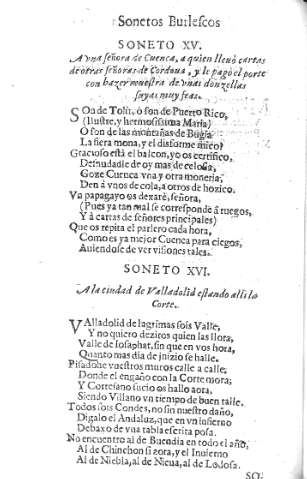 Sonetos Burlescos
SONETO XV.
A vna señora de Cuenca, a quien lleuò cartas
de otras señoras de Cordoua, y le pagò el porte
con hazer muestra de vnas donzellas
suyas muy feas.
SOn de Tolù, ò son de Puerto Rico,
(Ilustre, y hermosissima Maria)
O son de las montañas de Bugia
La fiera mona, y el disforme mico?
Gracioso està el balcon, yo os certifico,
Desnudadle de oy mas de celosia,
Goze Cuenca vna y otra moneria,
Den à vnos de cola, a otros de hozico.
Vn papagayo os dexarè, señora,
(Pues ya tan mal se corresponde à ruegos,
Y à cartas de señores principales)
Que os repita el parlero cada hora,
Como es ya mejor Cuenca para ciegos,
Auiendose de ver visiones tales.
SONETO XVI.
A la ciudad de Valladolid estando alli la
Corte.
VAlladolid de lagrimas sois Valle,
Y no quiero deziros quien las llora,
Valle de Iosaphat, sin que en vos hora,
Quanto mas dia de juizio se halle.
Pisado he vuestros muros calle a calle;
Donde el engaño con la Corte mora;
Y Cortesano sucio os hallo aora,
Siendo Villano vn tiempo de buen talle.
Todos sois Condes, no sin nuestro daño,
Digalo el Andaluz, que en vn infierno
Debaxo de vna tabla escrita posa.
No encuentro al de Buendia en todo el año,
Al de Chinchon si aora, y el Inuierno
Al de Niebla, al de Nieua, al de Lodosa.
SO-